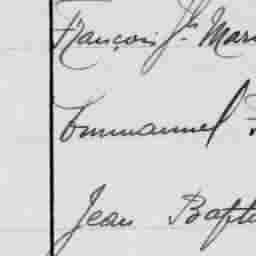 François Jh. Mari
Emmanuel
Jean Bapti